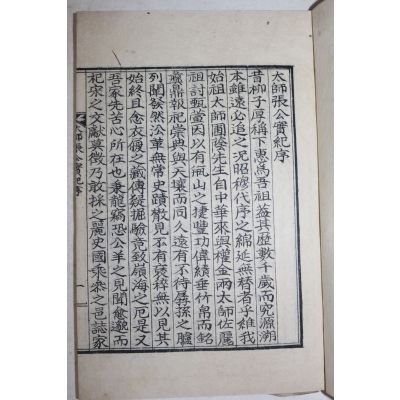 太師張公實紀序
昔柳子厚稱下惠爲吾祖蓋其歷數千歲而究源溯
本雖遠必追之況昭穆代序之綿延無替者乎維我
始祖太師圃蔭先生自中華來與權金兩太師佐麗
祖討甄萱因以有甁山之捷豐功偉績垂竹帛而銘
彛鼎報祀崇典與天壤而同久遠有不待孱孫之臚
列闡發然沿革無常史蹟散見不有裒稡無以見其
始終且念衣履之藏傳疑掘驗竟致嶺海之厄是又
吾家先苦心所在也秉龍竊恐公羊之見聞愈邈而
杞宋之文獻莫徵乃敢採之麗史國乘叅之邑誌家
太師張公實紀序 一